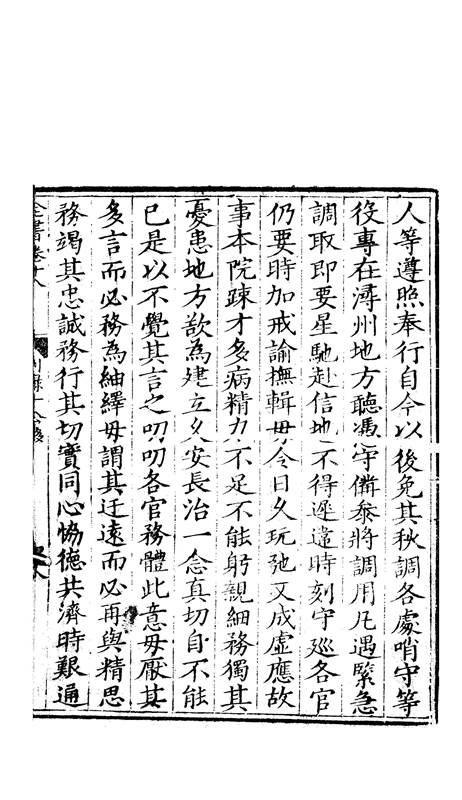 人等遵照奉行自今以後免其秋調各處哨守等
役專在潯州地方聽憑守備參將調用凡遇緊急
調取即要星馳赴信地不得遲違時刻守巡各官
仍要時加戒諭撫輯毋令日久玩弛又成虛應故
事本院疎才多病精力不足不能躬親細務獨其
憂患地方欲為建立久安長治一念真切自不能
已是以不覺其言之叨叨各官務體此意毋厭其
多言而必務為紬繹毋謂其迂遠而必再與精思
務竭其忠誠務行其切實同心協德共濟時艱通
全書卷十八